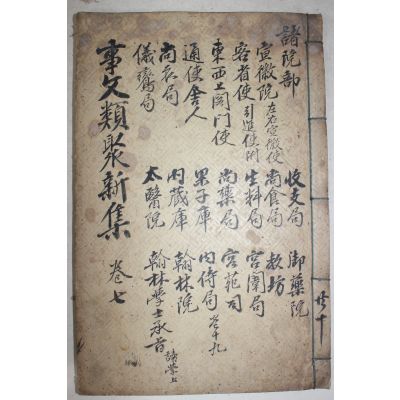 諸院部
宣徽院 左右宣徽使
客省使 引進使附
東西上閤門使
通使舍人
尚衣局
儀鸞局
收支局
尚食局
生料局
尚藥局
果子庫
內藏庫
太醫院
御藥院
教坊
宮闈局
宮苑司
內侍局
翰林院
翰林學士承旨
事文類聚新集
卷七